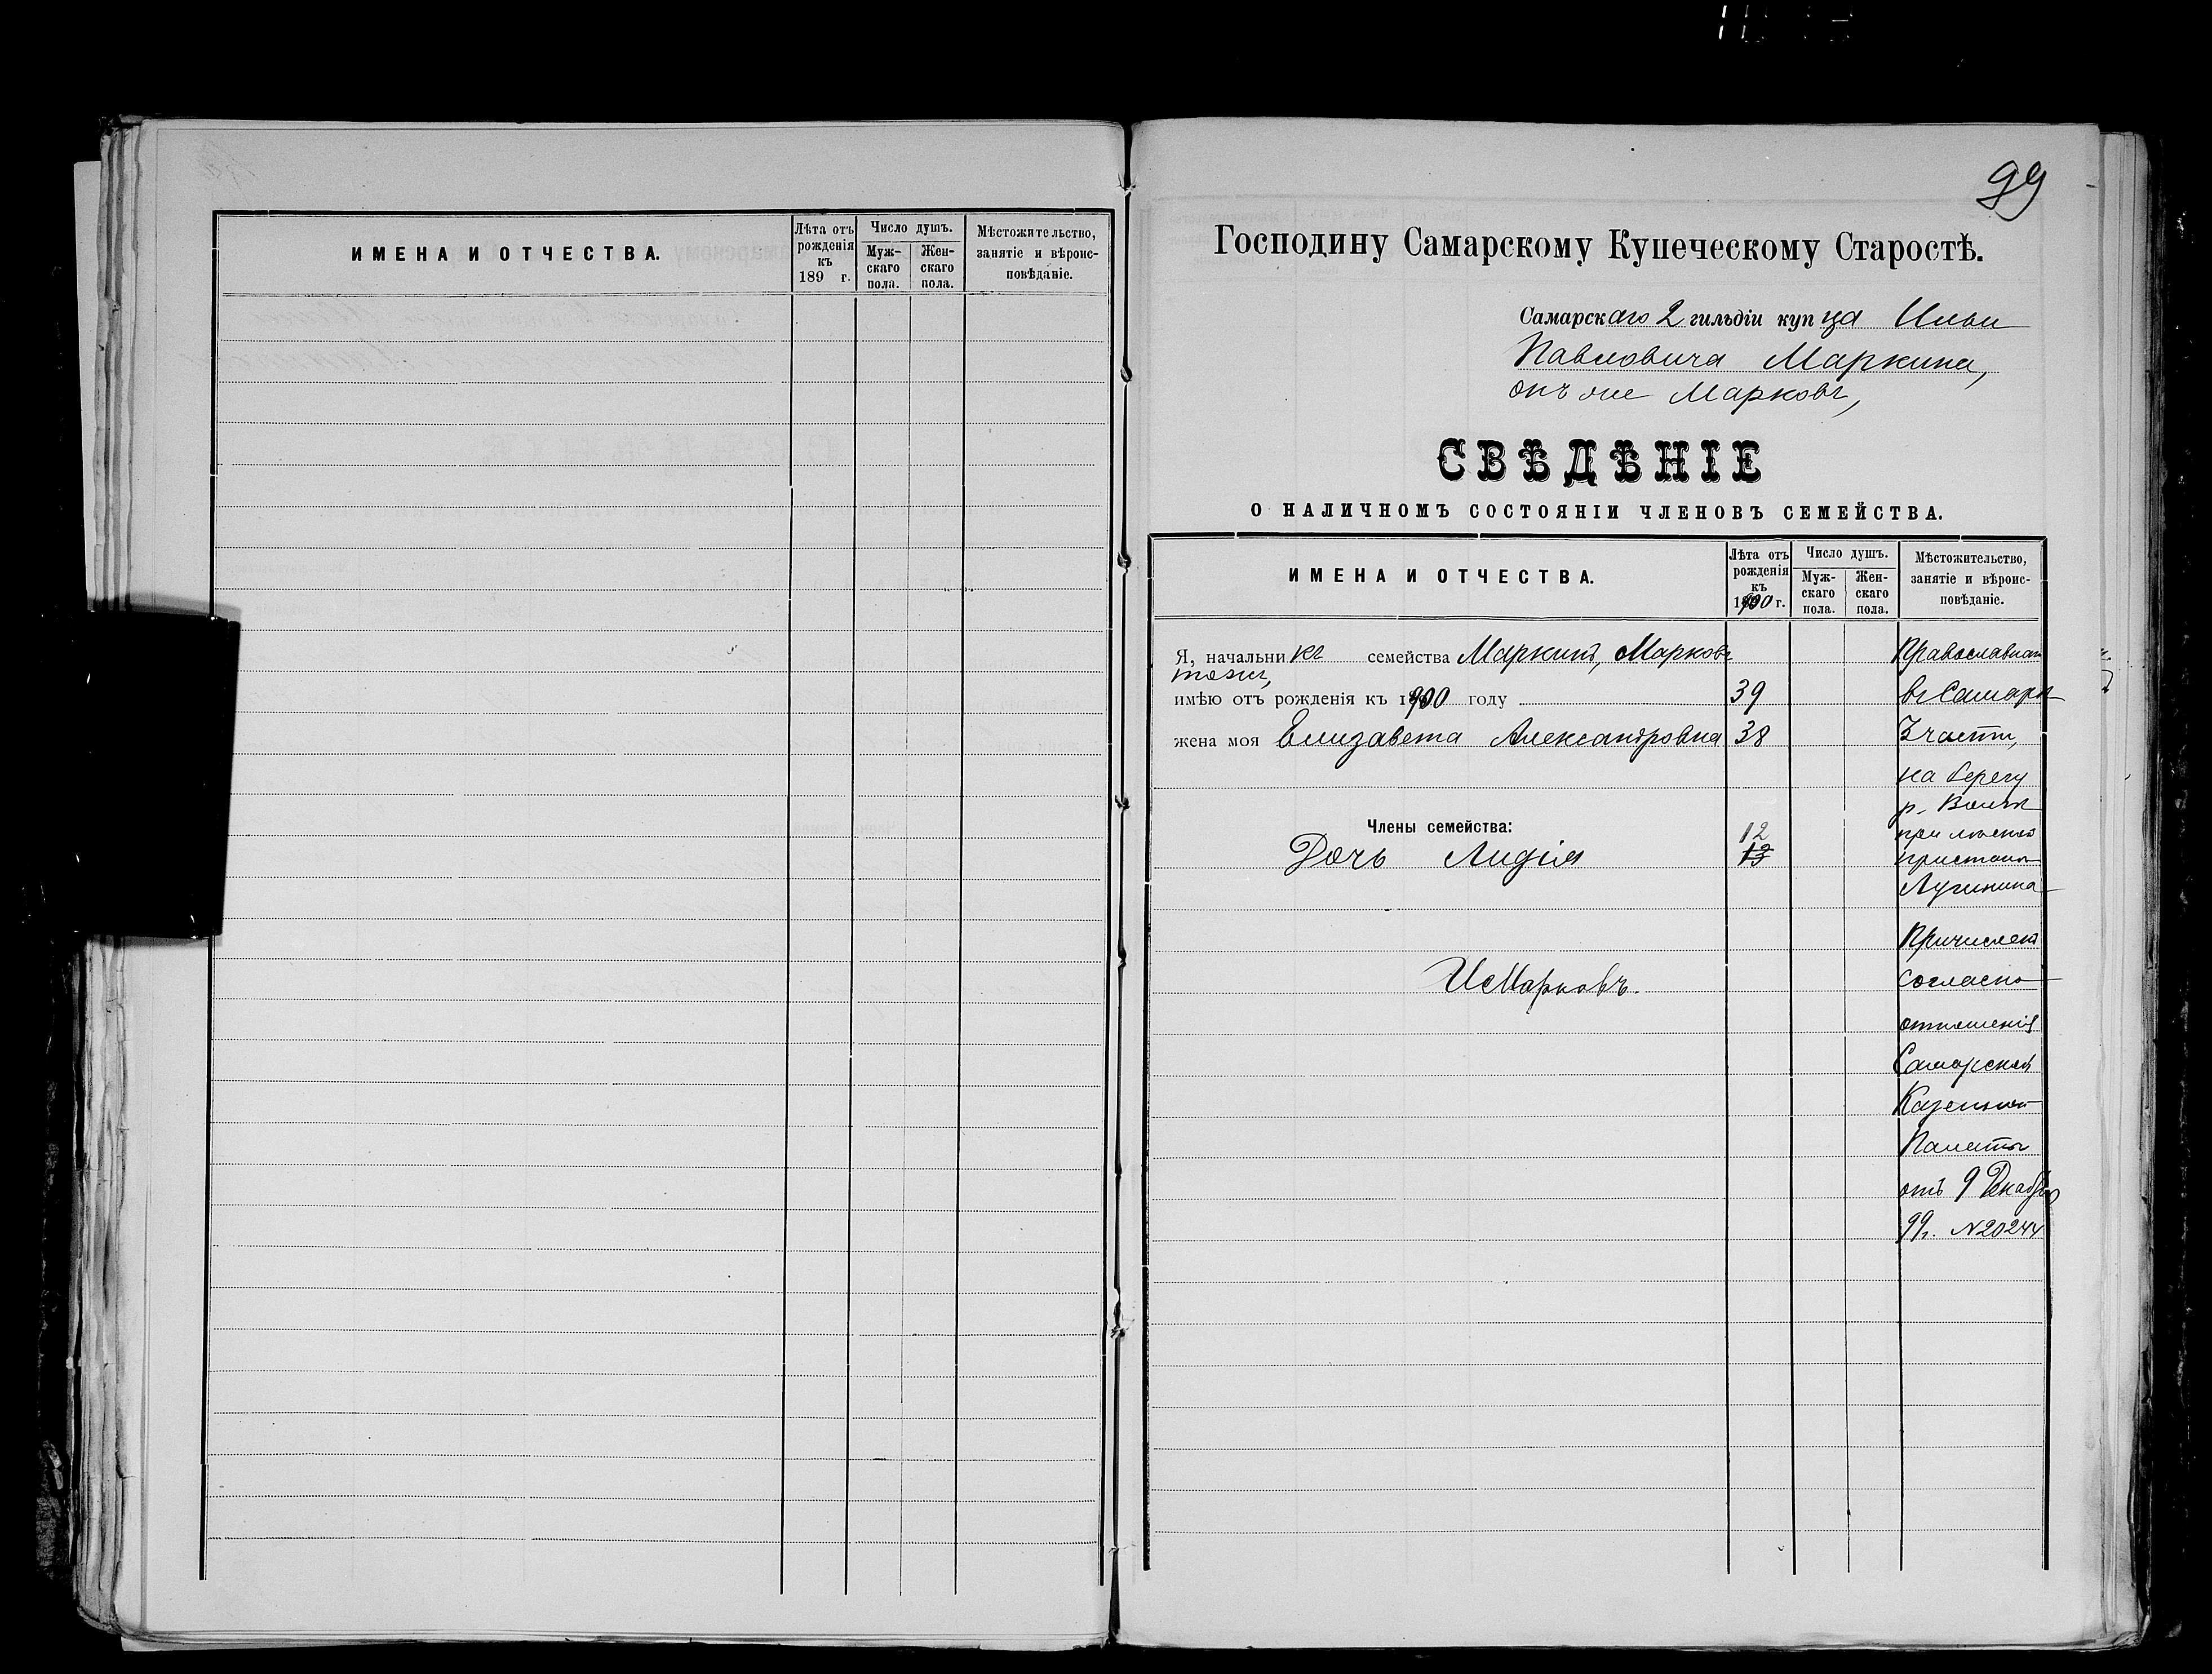 ИМЕНА И ОТЧЕСТВА.
Лѣта отъ рожденія къ 189 г.
Число душъ.
Муж-скаго пола.
Жен-скаго пола.
Мѣстожительство, занятіе и вѣроис-повѣданіе.
99
Господину Самарскому Купеческому Старостѣ.
Самарскаго 2 гильдіи купца Ильи
Павловича Маркина,
онъ же Марковъ,
СВѢДѢНІЕ
О НАЛИЧНОМЪ СОСТОЯНІИ ЧЛЕНОВЪ СЕМЕЙСТВА.
ИМЕНА И ОТЧЕСТВА.
Лѣта отъ рожденія къ 1900 г.
Число душъ.
Муж-скаго пола.
Жен-скаго пола.
Мѣстожительство, занятіе и вѣроис-повѣданіе.
Я, начальникъ семейства Маркинъ, Марковъ
тожъ,
имѣю отъ рожденія къ 1900 году 39
жена моя Елизавета Александровна 38
Члены семейства:
12
Дочь Лидія 13
И Марковъ.
Православная
въ Самарѣ
3 части,
на берегу
р. Волги
при
пристани
Причислен
согласно
отношенія
Самарской
Казенной
Палаты
отъ 9 Декабря
99г. N20244